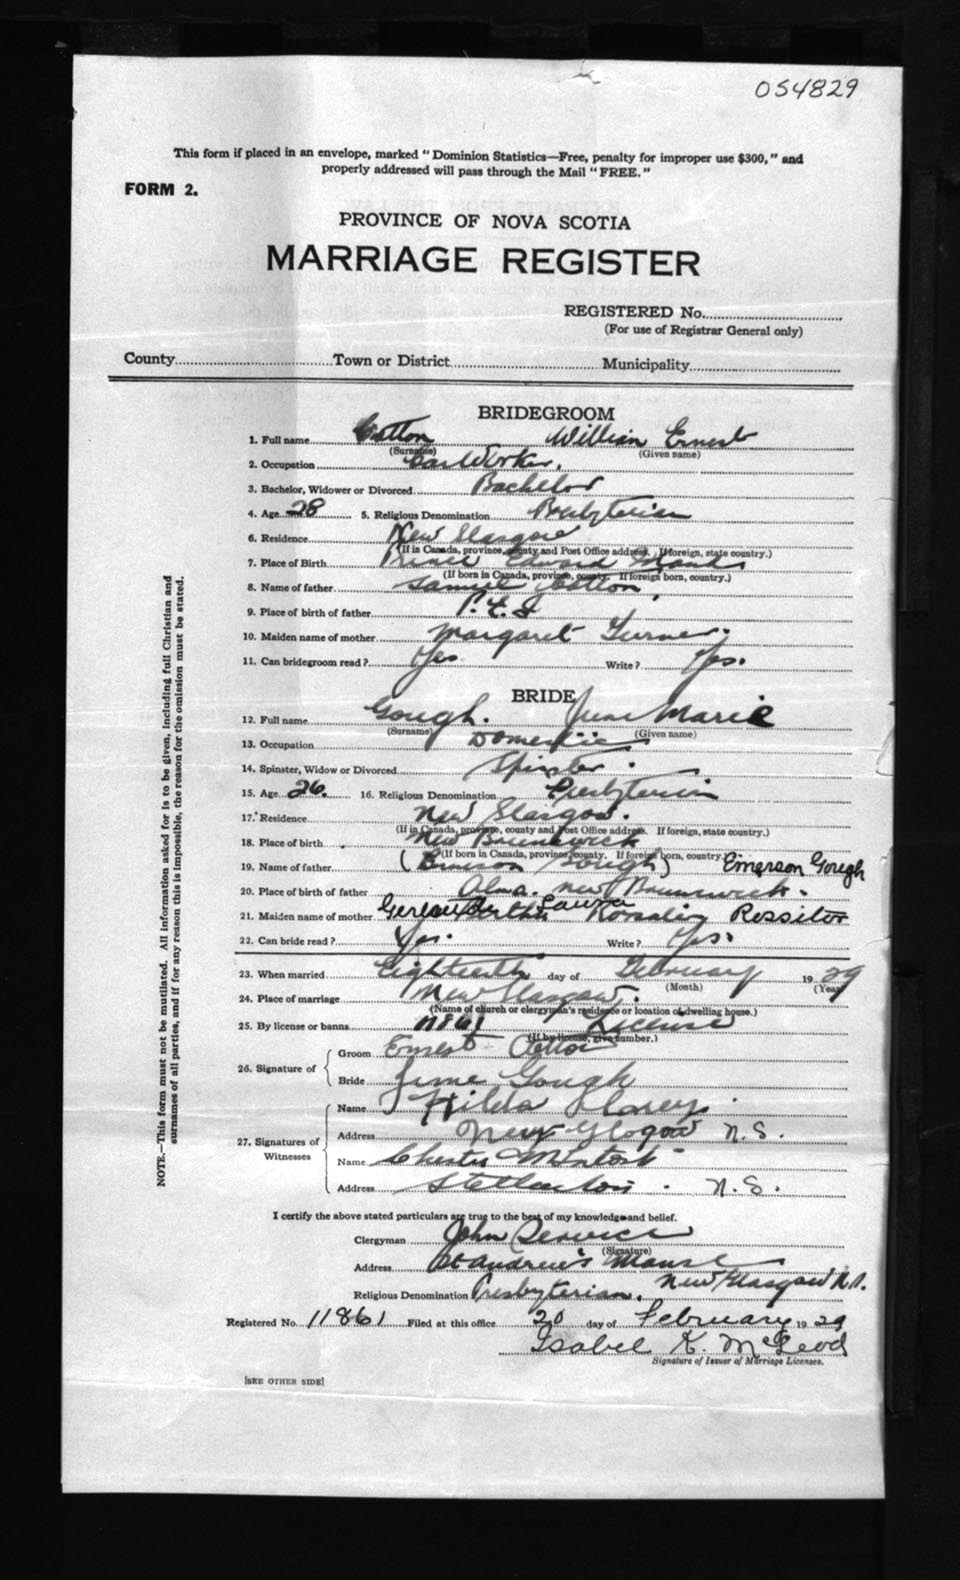 054829
This form if placed in an envelope, marked "Dominion Statistics—Free, penalty for improper use $300," and
properly addressed will pass through the Mail "FREE."
FORM 2.
PROVINCE OF NOVA SCOTIA
MARRIAGE REGISTER
REGISTERED No.
(For use of Registrar General only)
County Town or District Municipality
BRIDEGROOM
1. Full name Cotton William Ernest
(Surname) (Given name)
2. Occupation Car Worker.
3. Bachelor, Widower or Divorced Bachelor
4. Age 28 5. Religious Denomination Presbyterian
6. Residence New Glasgow
(If in Canada, province, county and Post Office address. If foreign, state country.)
7. Place of Birth Prince Edward Island
(If born in Canada, province, county. If foreign born, country.)
8. Name of father Samuel Cotton
9. Place of birth of father P.E.I
10. Maiden name of mother Margaret Turner.
11. Can bridegroom read? Yes Write? Yes.
BRIDE
12. Full name Gough. June Marie
(Surname) (Given name)
13. Occupation Domestic
14. Spinster, Widow or Divorced Spinster.
15. Age 26. 16. Religious Denomination Presbyterian
17. Residence New Glasgow.
(If in Canada, province, county and Post Office address. If foreign, state country.)
18. Place of birth New Brunswick
(If born in Canada, province, county. If foreign born, country.)
19. Name of father ( Gough) Emerson Gough
20. Place of birth of father Alma. New Brunswick.
21. Maiden name of mother Laura Rossiter
22. Can bride read? Yes. Write? Yes.
23. When married Eighteenth day of February 1929
(Month) (Year)
24. Place of marriage New Glasgow.
(Name of church or clergyman's residence or location of dwelling house.)
25. By license or banns 11861 License
(If by license, give number.)
26. Signature of Groom Ernest Cotton
Bride June Gough
27. Signatures of Witnesses Name Hilda
Address New Glasgow N.S.
Name Chester McIntosh
Address Stellarton. N.S.
I certify the above stated particulars are true to the best of my knowledge and belief.
Clergyman John
(Signature)
Address St Andrew's Manse
New Glasgow N.S.
Religious Denomination Presbyterian.
Registered No. 11861 Filed at this office 20 day of February 1929
Isabel K. McLeod
Signature of Issuer of Marriage Licenses.
[SEE OTHER SIDE]
NOTE.—This form must not be mutilated. All information asked for is to be given, including full Christian and
surnames of all parties, and if for any reason this is impossible, the reason for the omission must be stated.